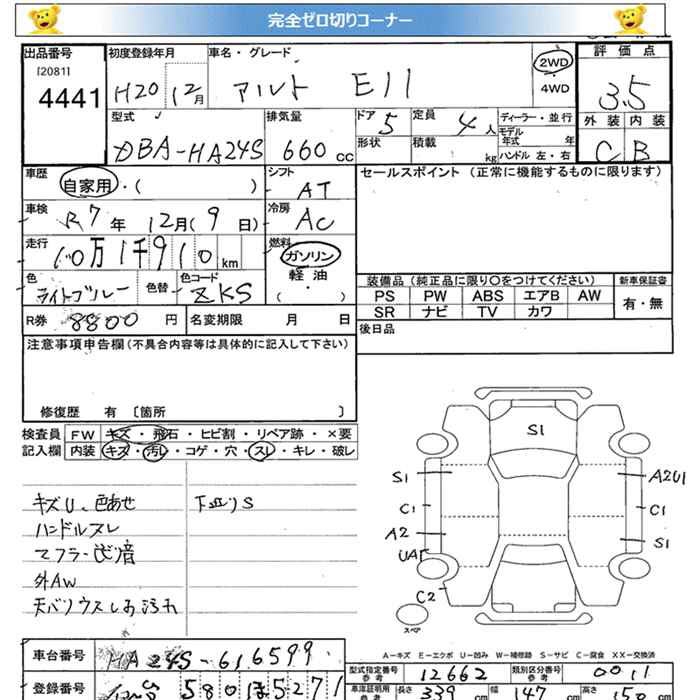 完全ゼロ切りコーナー
出品番号 初度登録年月 車名・グレード 2WD 評価点
[2081] 4WD
4441 H20 12月 アルト EII 3.5
型式 排気量 ドア 5 定員 4人 ディーラー・並行 外装 内装
DBA-HA24S 660cc 形状 積載 kg モデル年式 年 C B
ハンドル 左・右
車歴 シフト セールスポイント (正常に機能するものに限ります)
自家用・( ) AT
車検 R7年 12月(9日) 冷房 AC
走行 10万1千910km 燃料 ガソリン
軽油
( ・ )
色 ライトブルー 色替 色コード ZKS
装備品 (純正品に限り〇をつけてください) 新車保証書
PS PW ABS エアB AW 有・無
SR ナビ TV カワ
R券 8800円 名変期限 月 日 後日品
注意事項申告欄 (不具合内容等は具体的に記入して下さい)
修復歴 有 〔箇所 〕
検査員 FW キズ・飛石・ヒビ割・リペア跡・×要
記入欄 内装 キズ・汚レ・コゲ・穴・スレ・キレ・破レ
キズU、色あせ 下廻りS
ハンドルスレ
マフラー
外AW
汚れ
S1
S1 A2U1
C1 C1
A2 S1
UA1
C2
スペア
A-キズ E-エクボ U-凹み W-補修跡 S-サビ C-腐食 XX-交換済
車台番号 HA24S-616599
型式指定番号 参考 12662 類別区分番号 参考 0011
登録番号 580 ほ5271
車庫証明用 参考 長さ 339cm 幅 147cm 高さ 150cm